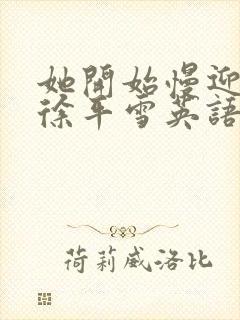 她開始慢迎
徐平雪英語
荷莉威洛比